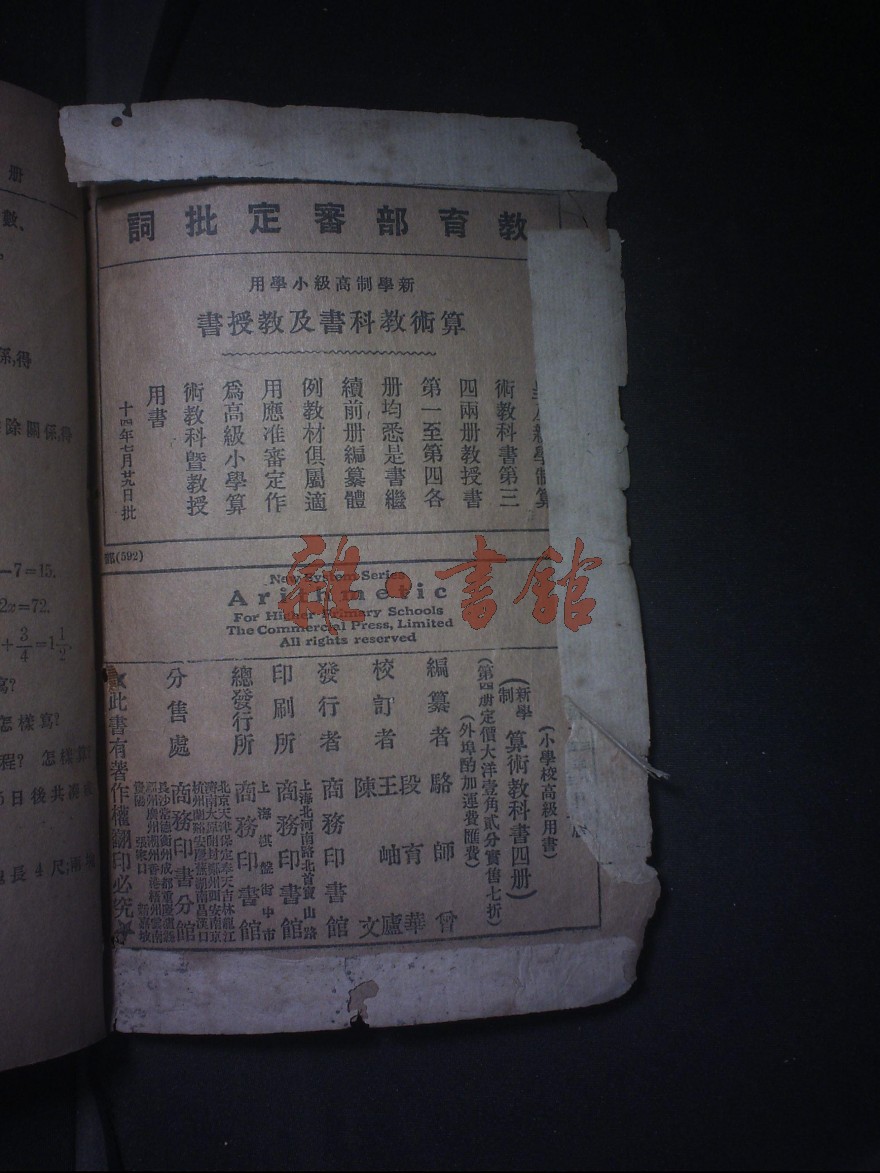 教育部審定批詞
新學制高級小學用
算術教科書及教授書
新學制算
術教科書第三
四兩册教授書
第一至第四各
册均悉是書繼
續前册編纂體
例教材俱屬適
用應准審定作
爲高級小學算
術教科曁教授
用書
十四年七月廿九日批
(592)
New System Series
Arithmetic
For Higher Primary Schools
The Commercial Press, Limited
All rights reserved
(小學校高級用書)
新學制 算術教科書四册
(第四册定價大洋壹角貳分實售七折)
(外埠酌加運費匯費)
編纂者 駱師曾
段育華
校訂者 王岫廬
陳文
發行者 商務印書館
上海北河南路北首寶山路
印刷所 商務印書館
上海棋盤街中市
總發行所 商務印書館
北京天津保定奉天吉林龍江
濟南太原開封鄭州西安南京
杭州蘭谿安慶蕪湖南昌漢口
分售處 商務印書分館
長沙常德衡州成都重慶瀘縣
福州廣州潮州香港梧州雲南
貴陽 張家口 新嘉坡
此書有著作權翻印必究
雜·書館
册
數、
係,得
除關係,得
−7=15.
2x=72.
+3/4=1 1/2.
寫?
怎樣寫?
程? 怎樣算?
日後共湊
長4尺;兩